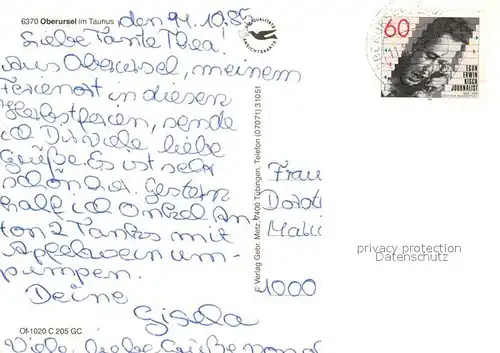 6370 Oberursel im Taunus
den 11.10.85
QUALITÄTS
ANSICHTSKARTE
60
EGON
ERWIN
KISCH
JOURNALIST
Liebe Tante Thea!
Aus Oberursel, meinem
Ferienort in diesen
Herbstferien, sende
ich Dir viele liebe
Grüße. Es ist sehr
schön hier. Gestern
half ich Onkel An
ton 2 Tanks mit
Apfelwein um-
pumpen.
Deine
Gisela
© Verlag Gebr. Metz, 7400 Tübingen, Telefon (07071) 31051
Frau
Dorot
1000
privacy protection
Datenschutz
Of-1020 C 205 GC
Viele liebe Grüße von